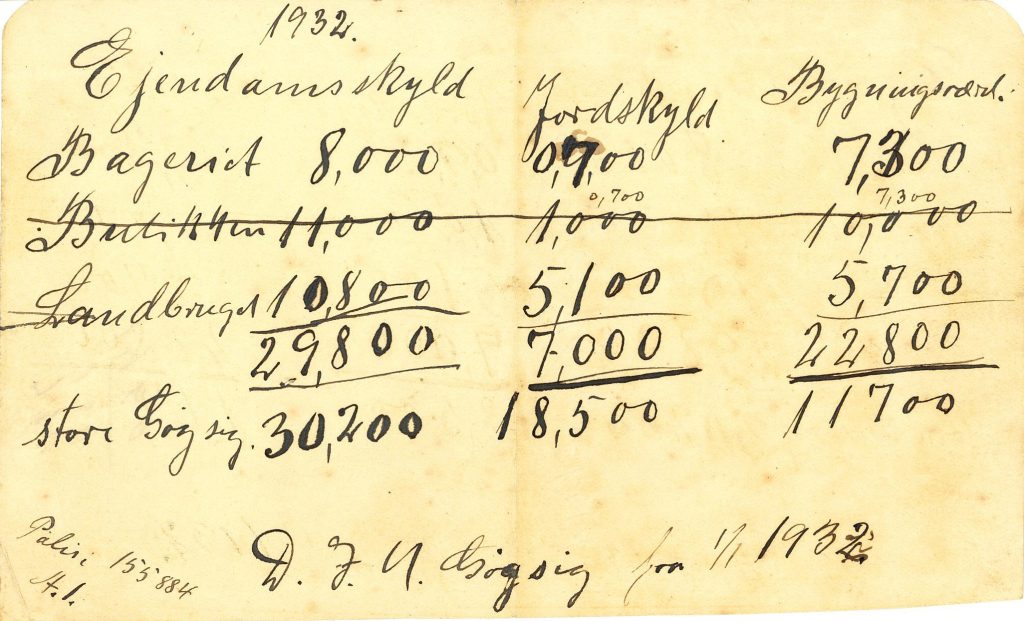 1932.
Ejendamsskyld Jordskyld Bygningsværd.
Bageriet 8,000 0,700 7,300
0,700 7,300
Butikken 11,000 1,000 10,000
Landbruget 10,800 5,100 5,700
29,800 7,000 22800
store Gøgsig. 30,200 18,500 11700
D. J. N. Gøgsig fra 1/1 1932
155884